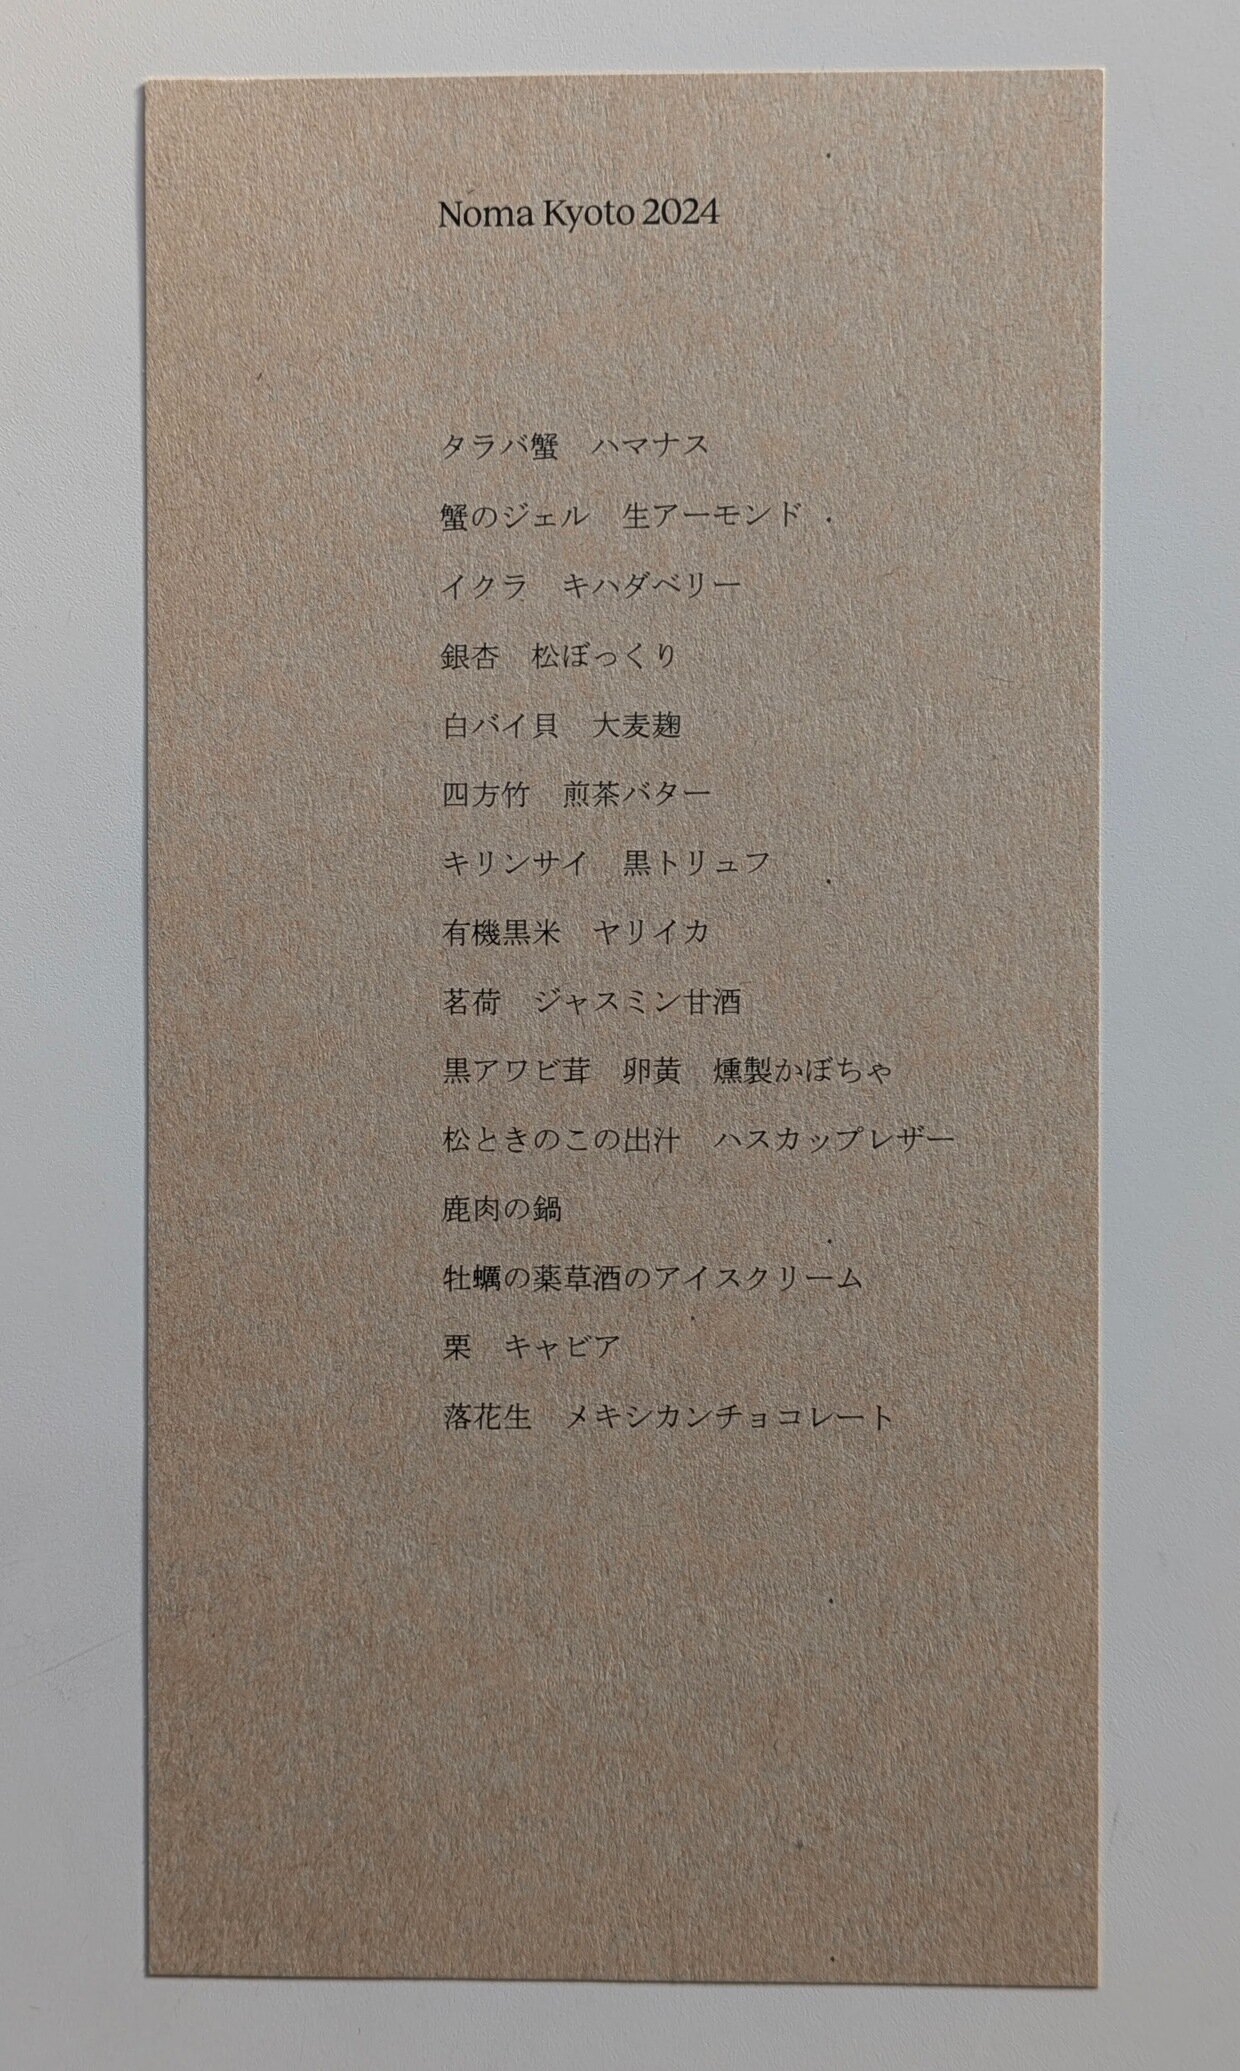 Noma Kyoto 2024
タラバ蟹　ハマナス
蟹のジェル　生アーモンド
イクラ　キハダベリー
銀杏　松ぼっくり
白バイ貝　大麦麹
四方竹　煎茶バター
キリンサイ　黒トリュフ
有機黒米　ヤリイカ
茗荷　ジャスミン甘酒
黒アワビ茸　卵黄　燻製かぼちゃ
松ときのこの出汁　ハスカップレザー
鹿肉の鍋
牡蠣の薬草酒のアイスクリーム
栗　キャビア
落花生　メキシカンチョコレート